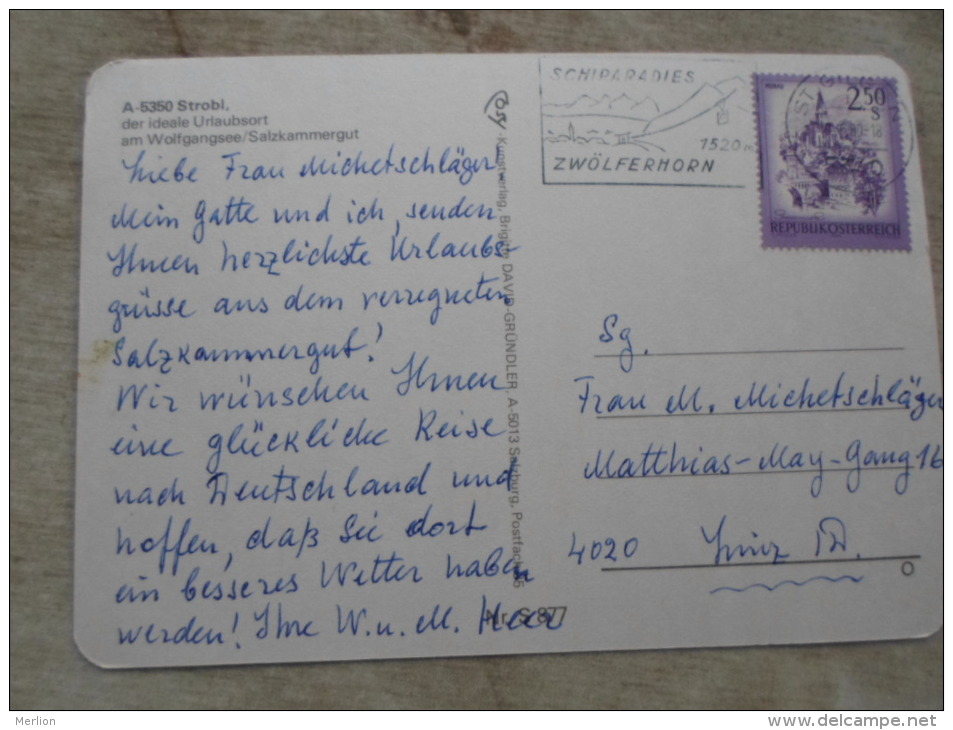 A-5350 Strobl,
der ideale Urlaubsort
am Wolfgangsee/Salzkammergut
Liebe Frau Michetschläger
Mein Gatte und ich, senden
Ihnen herzlichste Urlaubs-
grüsse aus dem verregneten
Salzkammergut!
Wir wünschen Ihnen
eine glückliche Reise
nach Deutschland und
hoffen, daß Sie dort
ein besseres Wetter haben
werden! Ihre W. u. M.
Kunstverlag, Brigitte DAVID-GRÜNDLER, A-5013 Salzburg, Postfach
Nr. S 877
SCHIPARADIES
1520 m
ZWÖLFERHORN
2.50
S
REPUBLIK ÖSTERREICH
Sg.
Frau M. Michetschläger
Matthias-May-Gang 16
4020 Linz
Merlion
www.delcampe.net